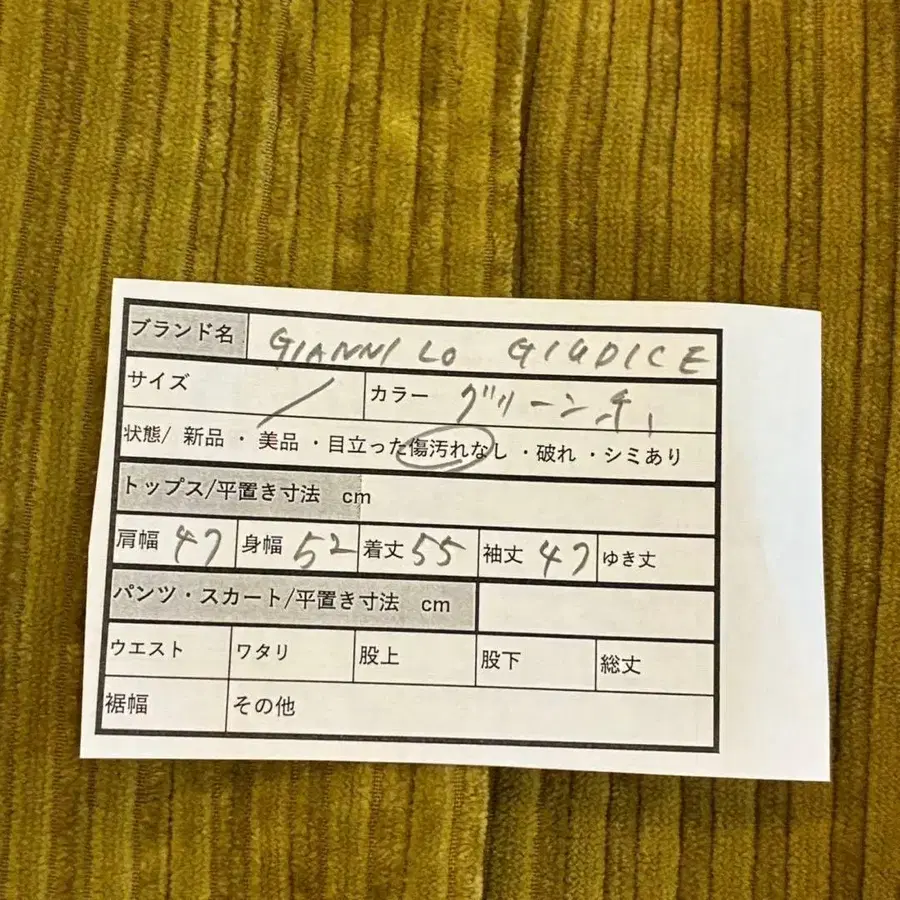 ブランド名 GIANNI LO GIUDICE
サイズ / カラー グリーン系
状態/ 新品 ・ 美品 ・目立った傷汚れなし ・破れ ・シミあり
トップス/平置き寸法 cm
肩幅 47 身幅 52 着丈 55 袖丈 47 ゆき丈
パンツ・スカート/平置き寸法 cm
ウエスト ワタリ 股上 股下 総丈
裾幅 その他